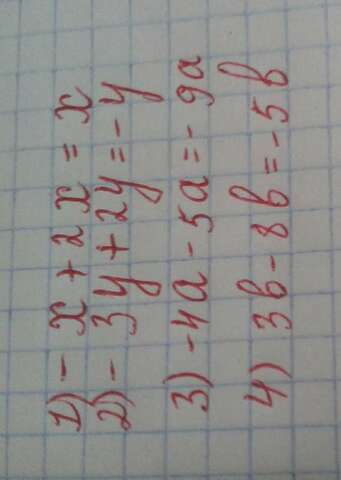 1) - x + 2x = x
2) - 3y + 2y = - y
3) -4a - 5a = - 9a
4) 3b - 8b = - 5b